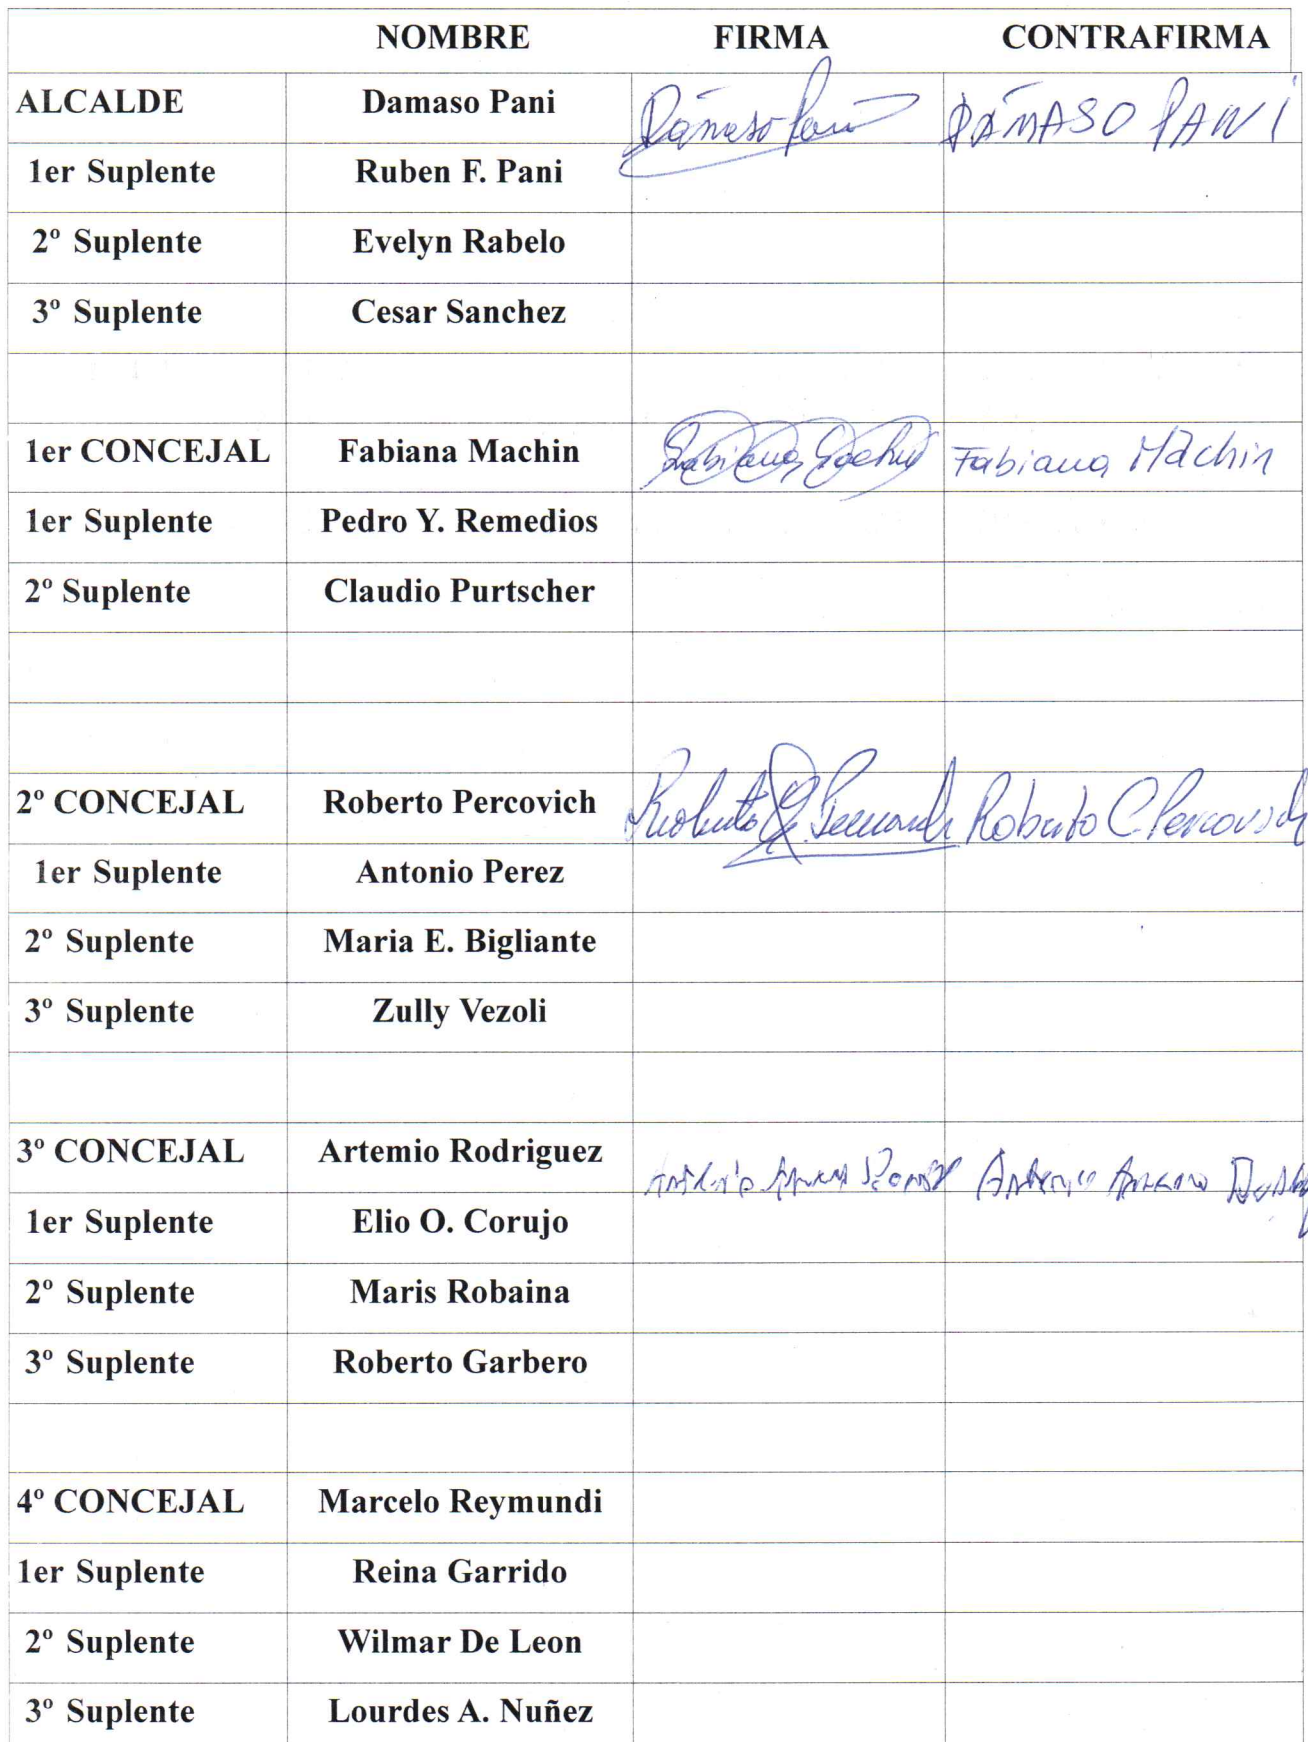 NOMBRE FIRMA CONTRAFIRMA
ALCALDE Damaso Pani Dámaso Pani DÁMASO PANI
1er Suplente Ruben F. Pani
2º Suplente Evelyn Rabelo
3º Suplente Cesar Sanchez
1er CONCEJAL Fabiana Machin Fabiana Machin Fabiana Machin
1er Suplente Pedro Y. Remedios
2º Suplente Claudio Purtscher
2º CONCEJAL Roberto Percovich Roberto Roberto C Percovich
1er Suplente Antonio Perez
2º Suplente Maria E. Bigliante
3º Suplente Zully Vezoli
3º CONCEJAL Artemio Rodriguez
1er Suplente Elio O. Corujo
2º Suplente Maris Robaina
3º Suplente Roberto Garbero
4º CONCEJAL Marcelo Reymundi
1er Suplente Reina Garrido
2º Suplente Wilmar De Leon
3º Suplente Lourdes A. Nuñez